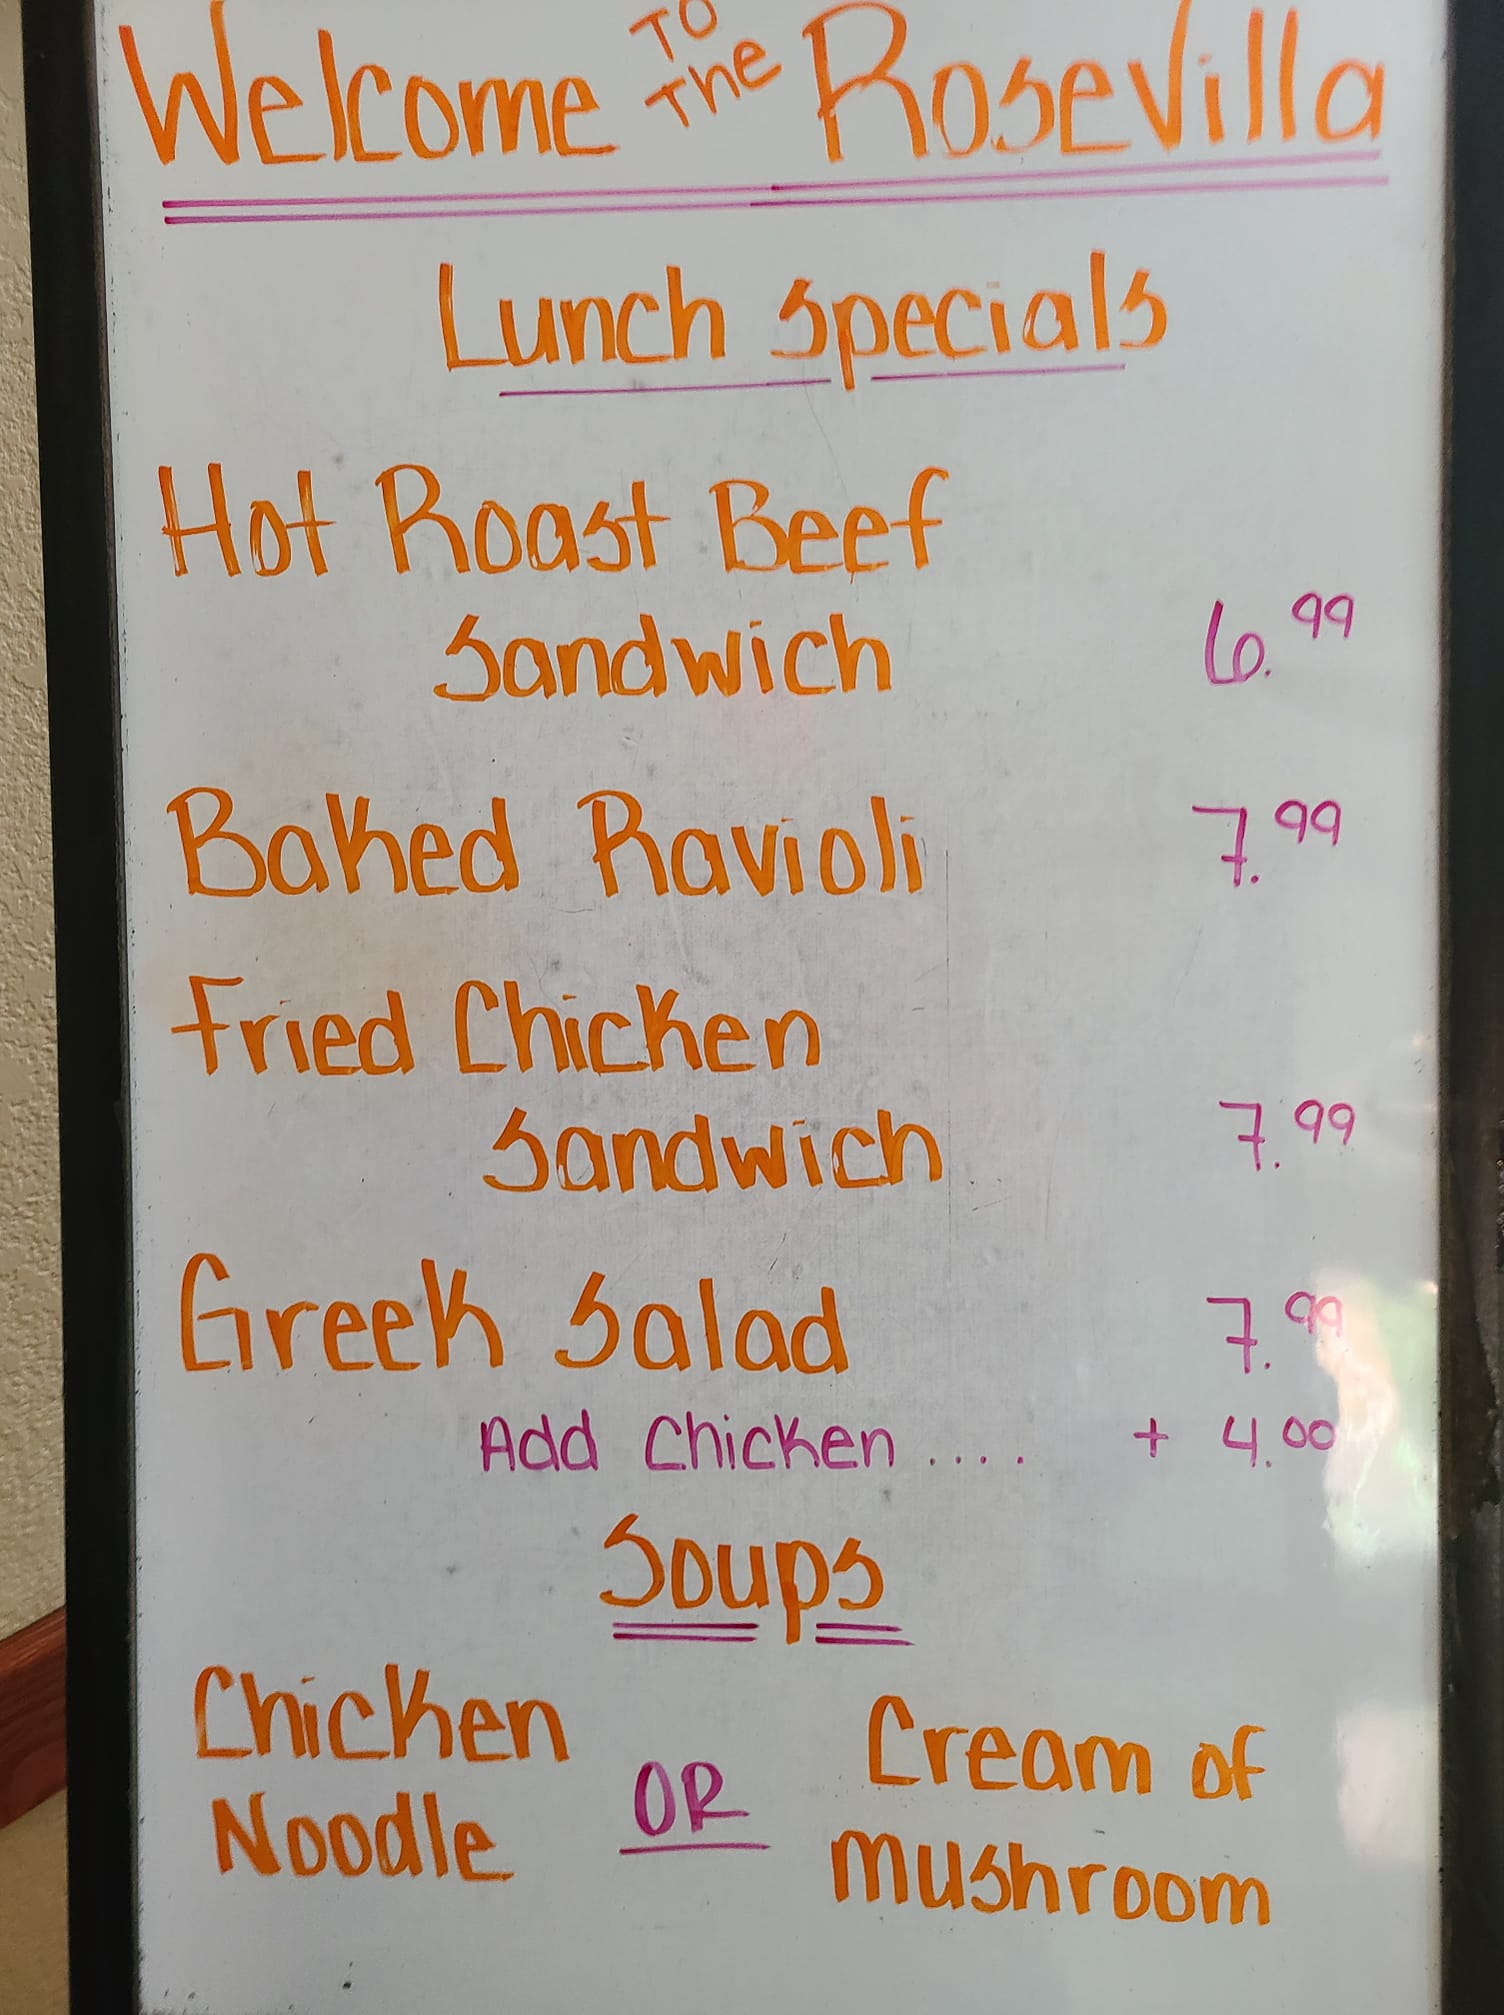 Welcome TO The Rosevilla
Lunch Specials
Hot Roast Beef
Sandwich 6.99
Baked Ravioli 7.99
Fried Chicken
Sandwich 7.99
Greek Salad 7.99
Add Chicken .... + 4.00
Soups
Chicken Noodle
OR
Cream of mushroom